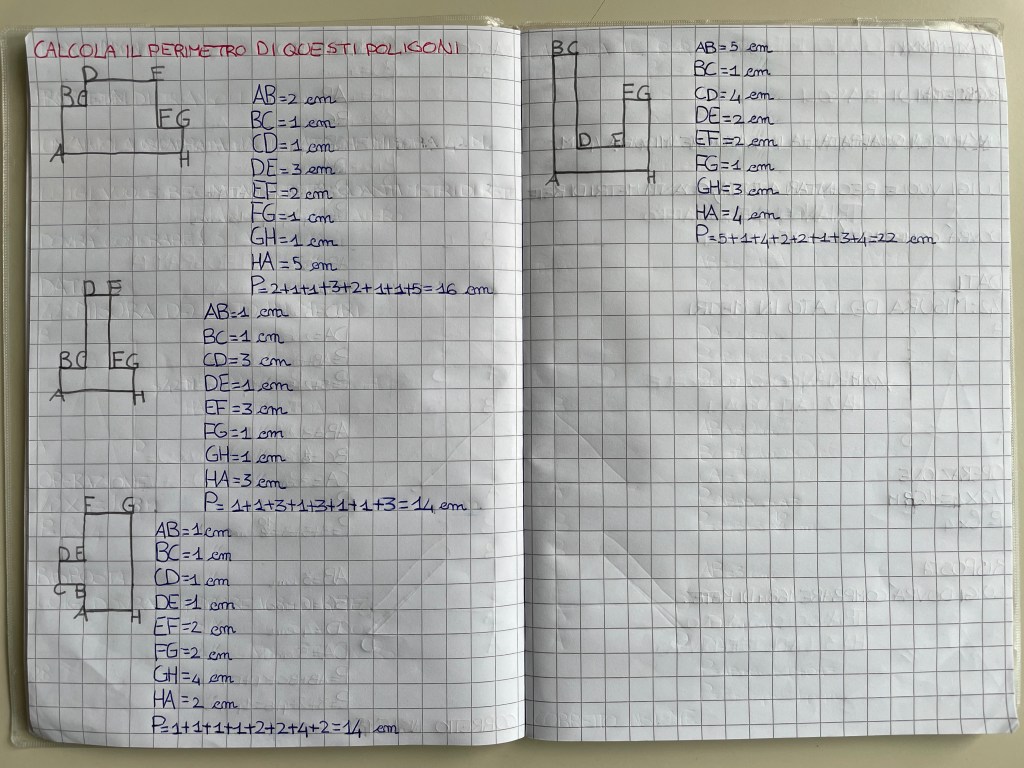 CALCOLA IL PERIMETRO DI QUESTI POLIGONI
D E
BC
FG
A H
AB=2 cm
BC=1 cm
CD=1 cm
DE=3 cm
EF=2 cm
FG=1 cm
GH=1 cm
HA=5 cm
P=2+1+1+3+2+1+1+5=16 cm
D E
BC FG
A H
AB=1 cm
BC=1 cm
CD=3 cm
DE=1 cm
EF=3 cm
FG=1 cm
GH=1 cm
HA=3 cm
P=1+1+3+1+3+1+1+3=14 cm
F G
DE
C B
A H
AB=1 cm
BC=1 cm
CD=1 cm
DE=1 cm
EF=2 cm
FG=2 cm
GH=4 cm
HA=2 cm
P=1+1+1+1+2+2+4+2=14 cm
BC
FG
D E
A H
AB=5 cm
BC=1 cm
CD=4 cm
DE=2 cm
EF=2 cm
FG=1 cm
GH=3 cm
HA=4 cm
P=5+1+4+2+2+1+3+4=22 cm